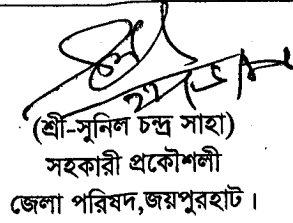 (শ্রী-সুনিল চন্দ্র সাহা)
সহকারী প্রকৌশলী
জেলা পরিষদ,জয়পুরহাট।